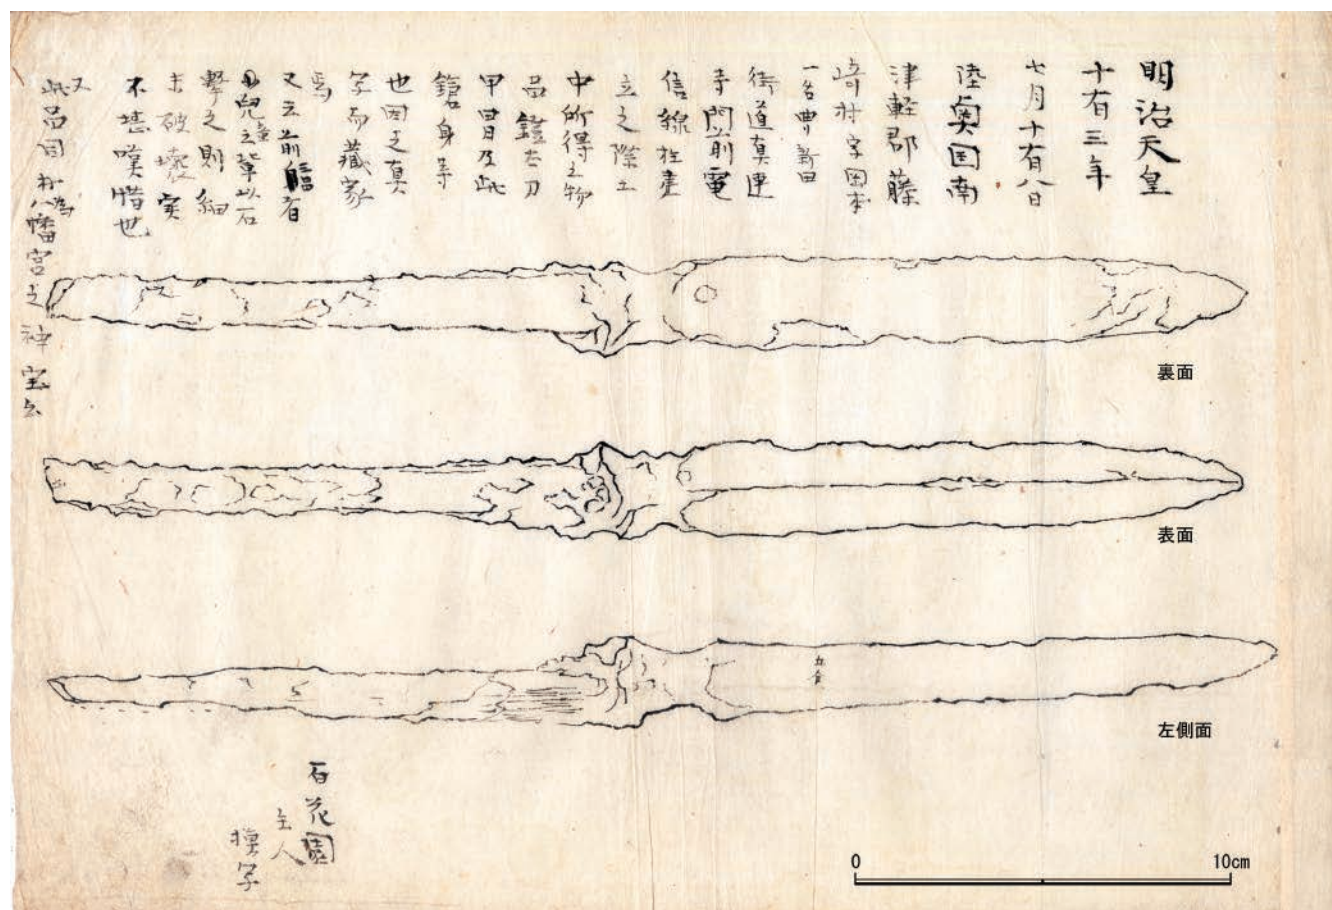 明治天皇
十有三年
七月十有八日
陸奥国南
津軽郡藤
崎村字岡本
一名曲新田
街道真連
寺門前電
信線柱建
立之際土
中所得之物
品鎧太刀
甲冑及此
鎗身等
也因之真
写而蔵家
焉
又云前有
兒童之輩以石
撃之則細
末破壊実
不堪嘆惜也
又
此品同村八幡宮之神宝云
裏面
表面
左側面
百花園
主人
模写
0 10cm